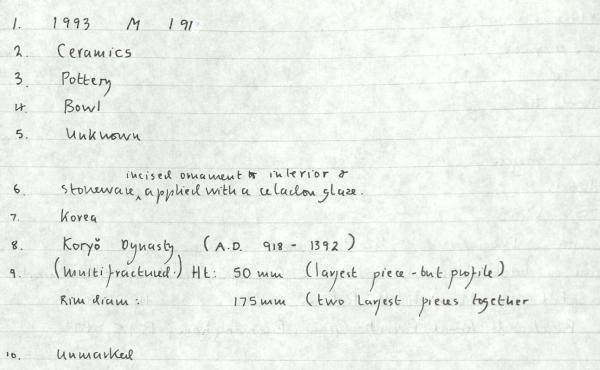 1. 1993 M 191
2. Ceramics
3. Pottery
4. Bowl
5. Unknown
incised ornament to interior &
6. Stoneware, applied with a celadon glaze.
7. Korea
8. Koryŏ Dynasty (A.D. 918 - 1392)
9. (multi fractured.) Ht: 50 mm (largest piece - but profile)
Rim diam: 175 mm (two largest pieces together
10. Unmarked